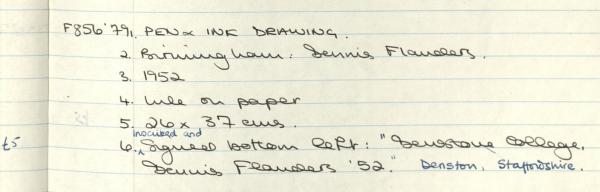 F856'79. 1. PEN & INK DRAWING.
2. Birmingham: Dennis Flanders.
3. 1952
4. Ink on paper
5. 26 x 37 cms.
inscribed and
£5 6. Signed bottom left: "Denstone College,
Dennis Flanders '52." Denston, Staffordshire.